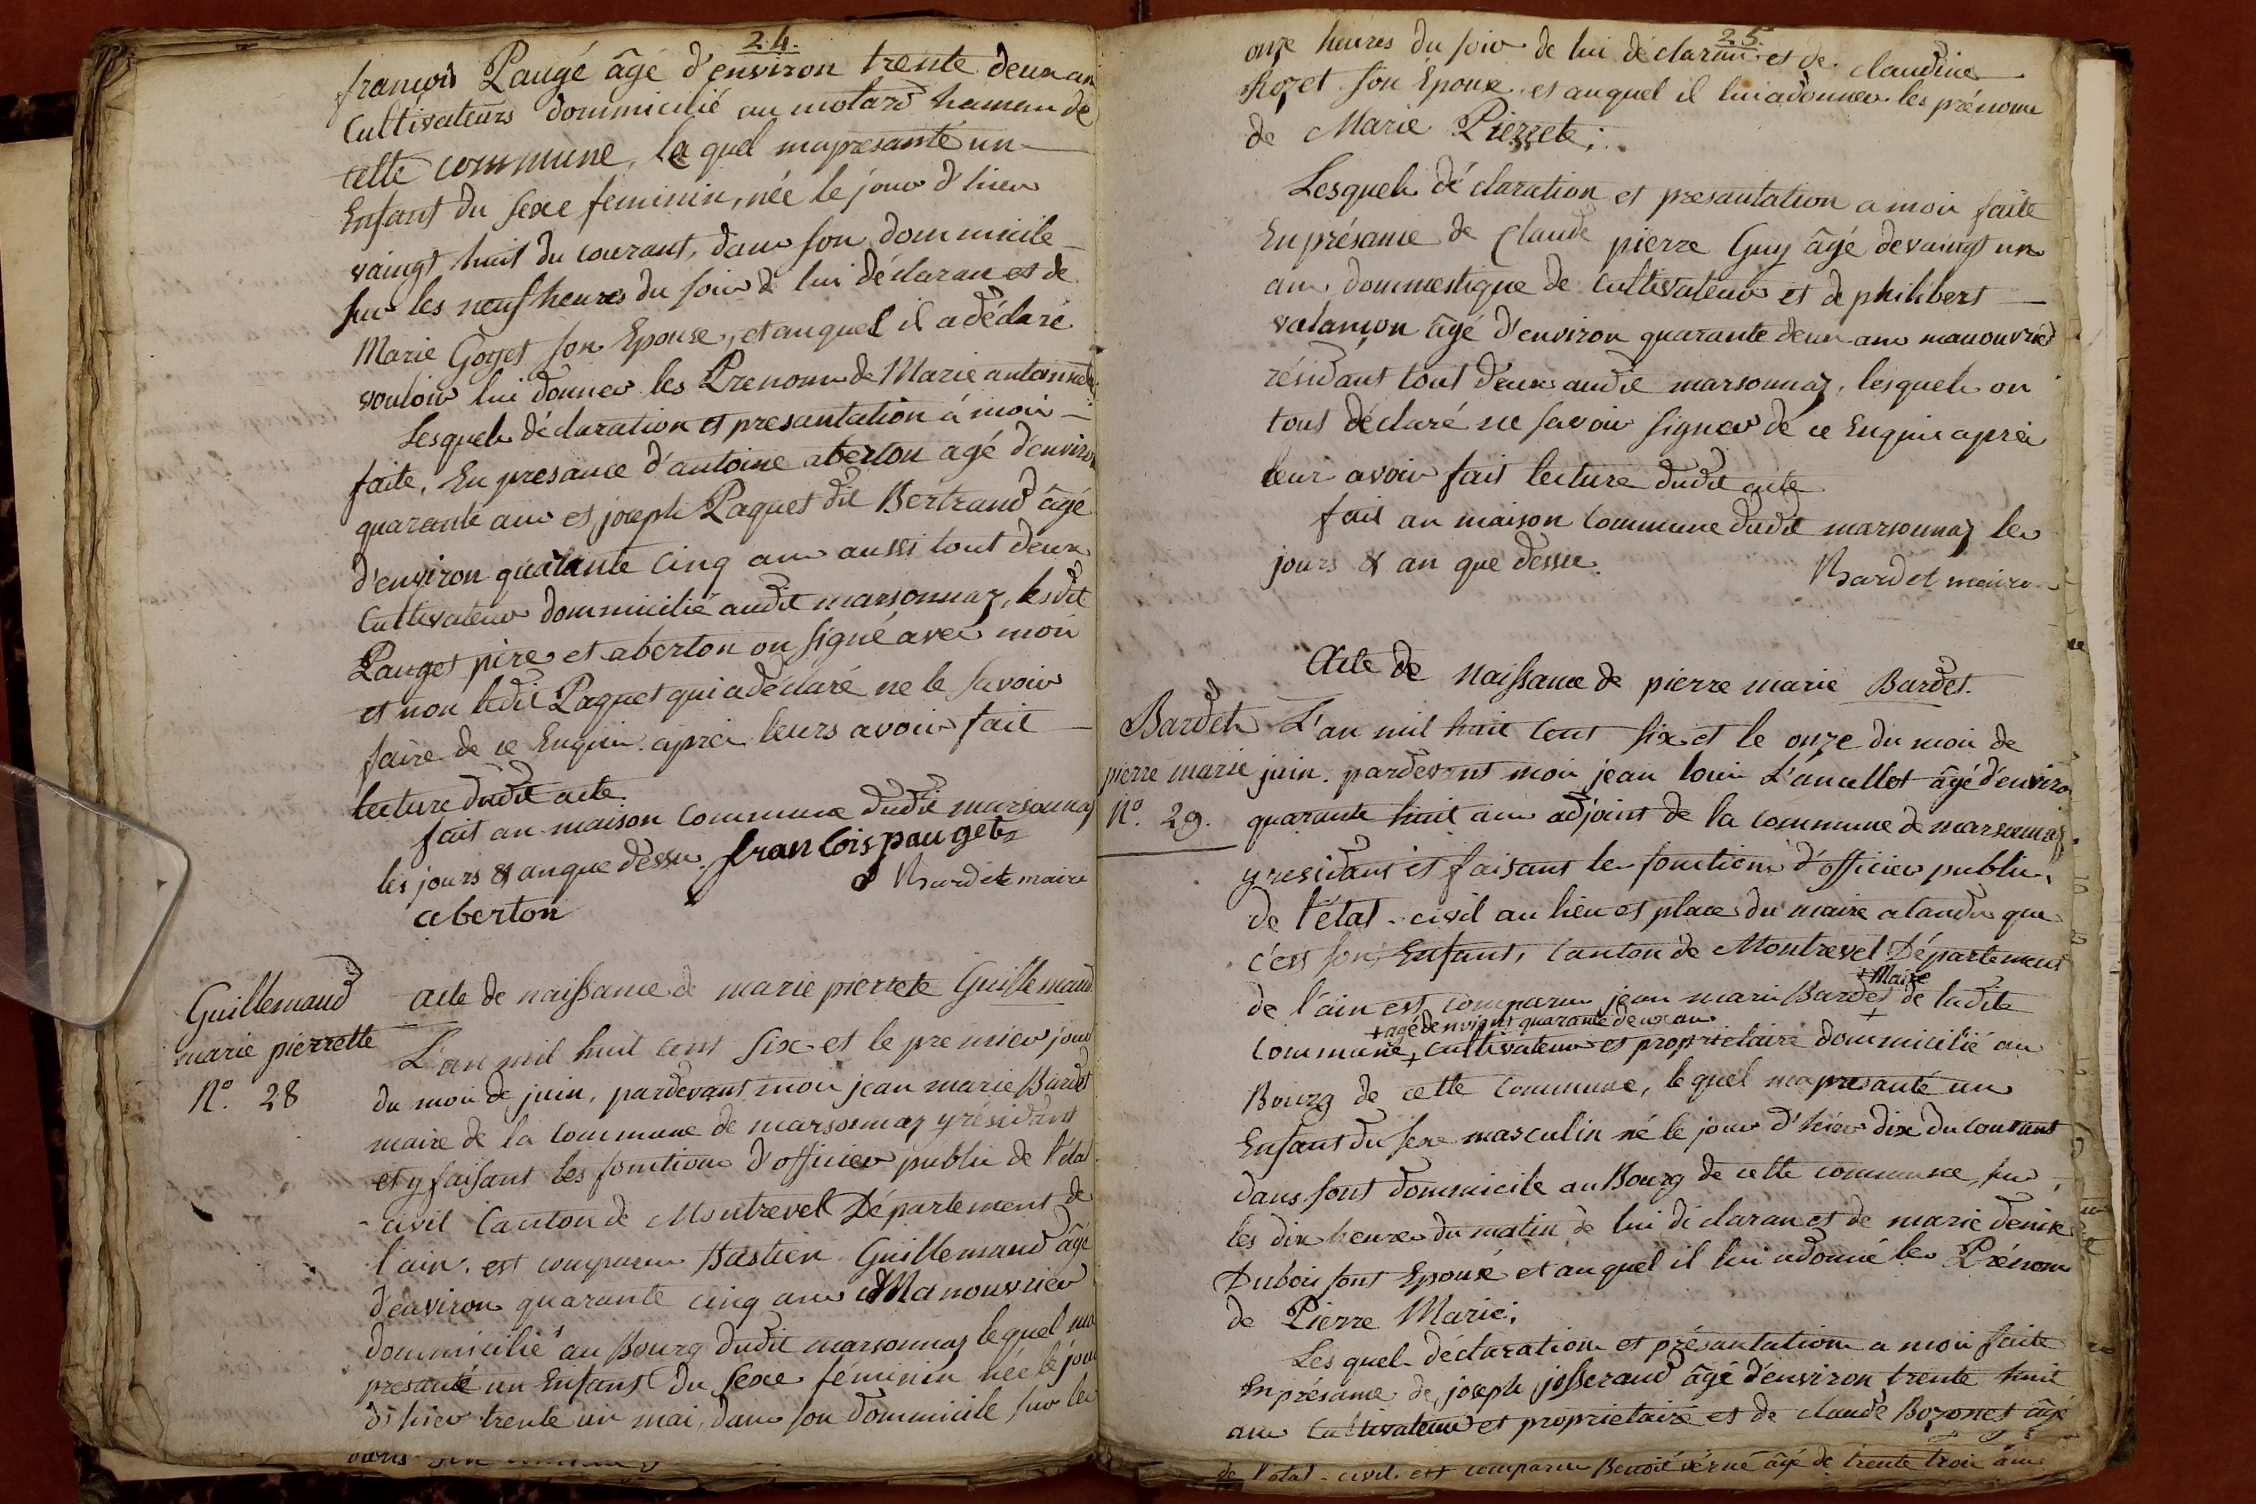 24.
françois Paugé âgé d'environ trente deux an
Cultivateurs dommicilié au motard hameau de
cette commune, le quel mapresanté un
Enfant du sexe feminin, née le jour d'hier
vaingt huit du courant, dans son dommicile
sur les neuf heures du soir de lui déclaran et de
Marie Goyet son Epouse, et auquel il a déclaré
vouloir lui donner les Prenoms de Marie antoinette
Lesquels déclaration et presantation à moi
faite, En presance d'antoine aberton agé d'environ
quarante ans et joseph Paquet dit Bertrand âgé
d'environ quarante cinq ans aussi tout deux
Cultivateur dommicilié audit marsonnaz, lesdit
Pauget pere et aberton on signé avec moi
et non ledit Paquet qui a déclaré ne le savoir
faire de ce Enquis après leurs avoir fait
lecture dudit acte
fait an maison commune dudit marsonnaz
les jours & an que dessu. francois paugets
Bardet maire
aberton
Guillemaud
marie pierrette
N°. 28
Acte de naissance de marie pierrete Guillemaud
L'an mil huit cent six et le premier jour
du moi de juin, pardevant moi jean marie Bardet
maire de la commune de marsonnaz y résidant
et y faisant les fonctions d'officier public de l'état
civil Canton de Montrevel Département de
l'ain. est comparu Bastien Guillemaud âgé
d'environ quarante cinq ans Manouvrier
dommicilié au Bourg dudit marsonnaz lequel ma
presanté un Enfant du sexe féminin née le jour
d'hier trente un mai, dans son dommicile sur les
25.
onze heures du soir de lui déclaran et de claudine
Rozet son Epouse et auquel il lui a donner les prénoms
de Marie Pierrete;
Lesquels déclaration et presantation a moi faite
En présance de Claude pierre Guy âgé de vaingt un
ans dommestique de Cultivateur et de philibert
valançon âgé d'environ quarante deux ans manouvrier
résidant tout deux audit marsonnaz, lesquels on
tous déclaré ne savoir signer de ce Enquis après
leur avoir fait lecture dudit acte
fait an maison Commune dudit marsonnaz les
jours & an que dessu.
Bardet maire
Acte de Naissance de pierre marie Bardet.
Bardet
pierre marie
N°. 29.
L'an mil huit Cent six et le onze du moi de
juin. pardevant moi jean loui Lancellot âgé d'environ
quarante huit ans adjoint de la commune de marsonnaz
y residant et faisant les fonctions d'officier public
de l'état-civil au lieu et place du maire atandu que
c'est son Enfant, Canton de Montrevel Département
+ Maire
de l'ain est comparu jean marie Bardet + de ladite
+ agé denviront quarante deux an
Commune, + cultivateur et proprietaire dommicilié au
Bourg de cette Commune, lequel mapresanté un
Enfant du sexe masculin né le jour d'hier dix du courant
dans sont dommicile au Bourg de cette commune, sur
les dix heures du matin de lui declaran et de marie denise
Dubois sont Epouse et auquel il lui a donné les Prénoms
de Pierre Marie;
Lesquels déclaration et présantation a moi faite
En présance de joseph josserand âgé d'environ trente huit
ans Cultivateur et proprietaire et de claude Bozonet âgé
de l'état-civil est comparu Benoit vérné âgé de trente trois ans